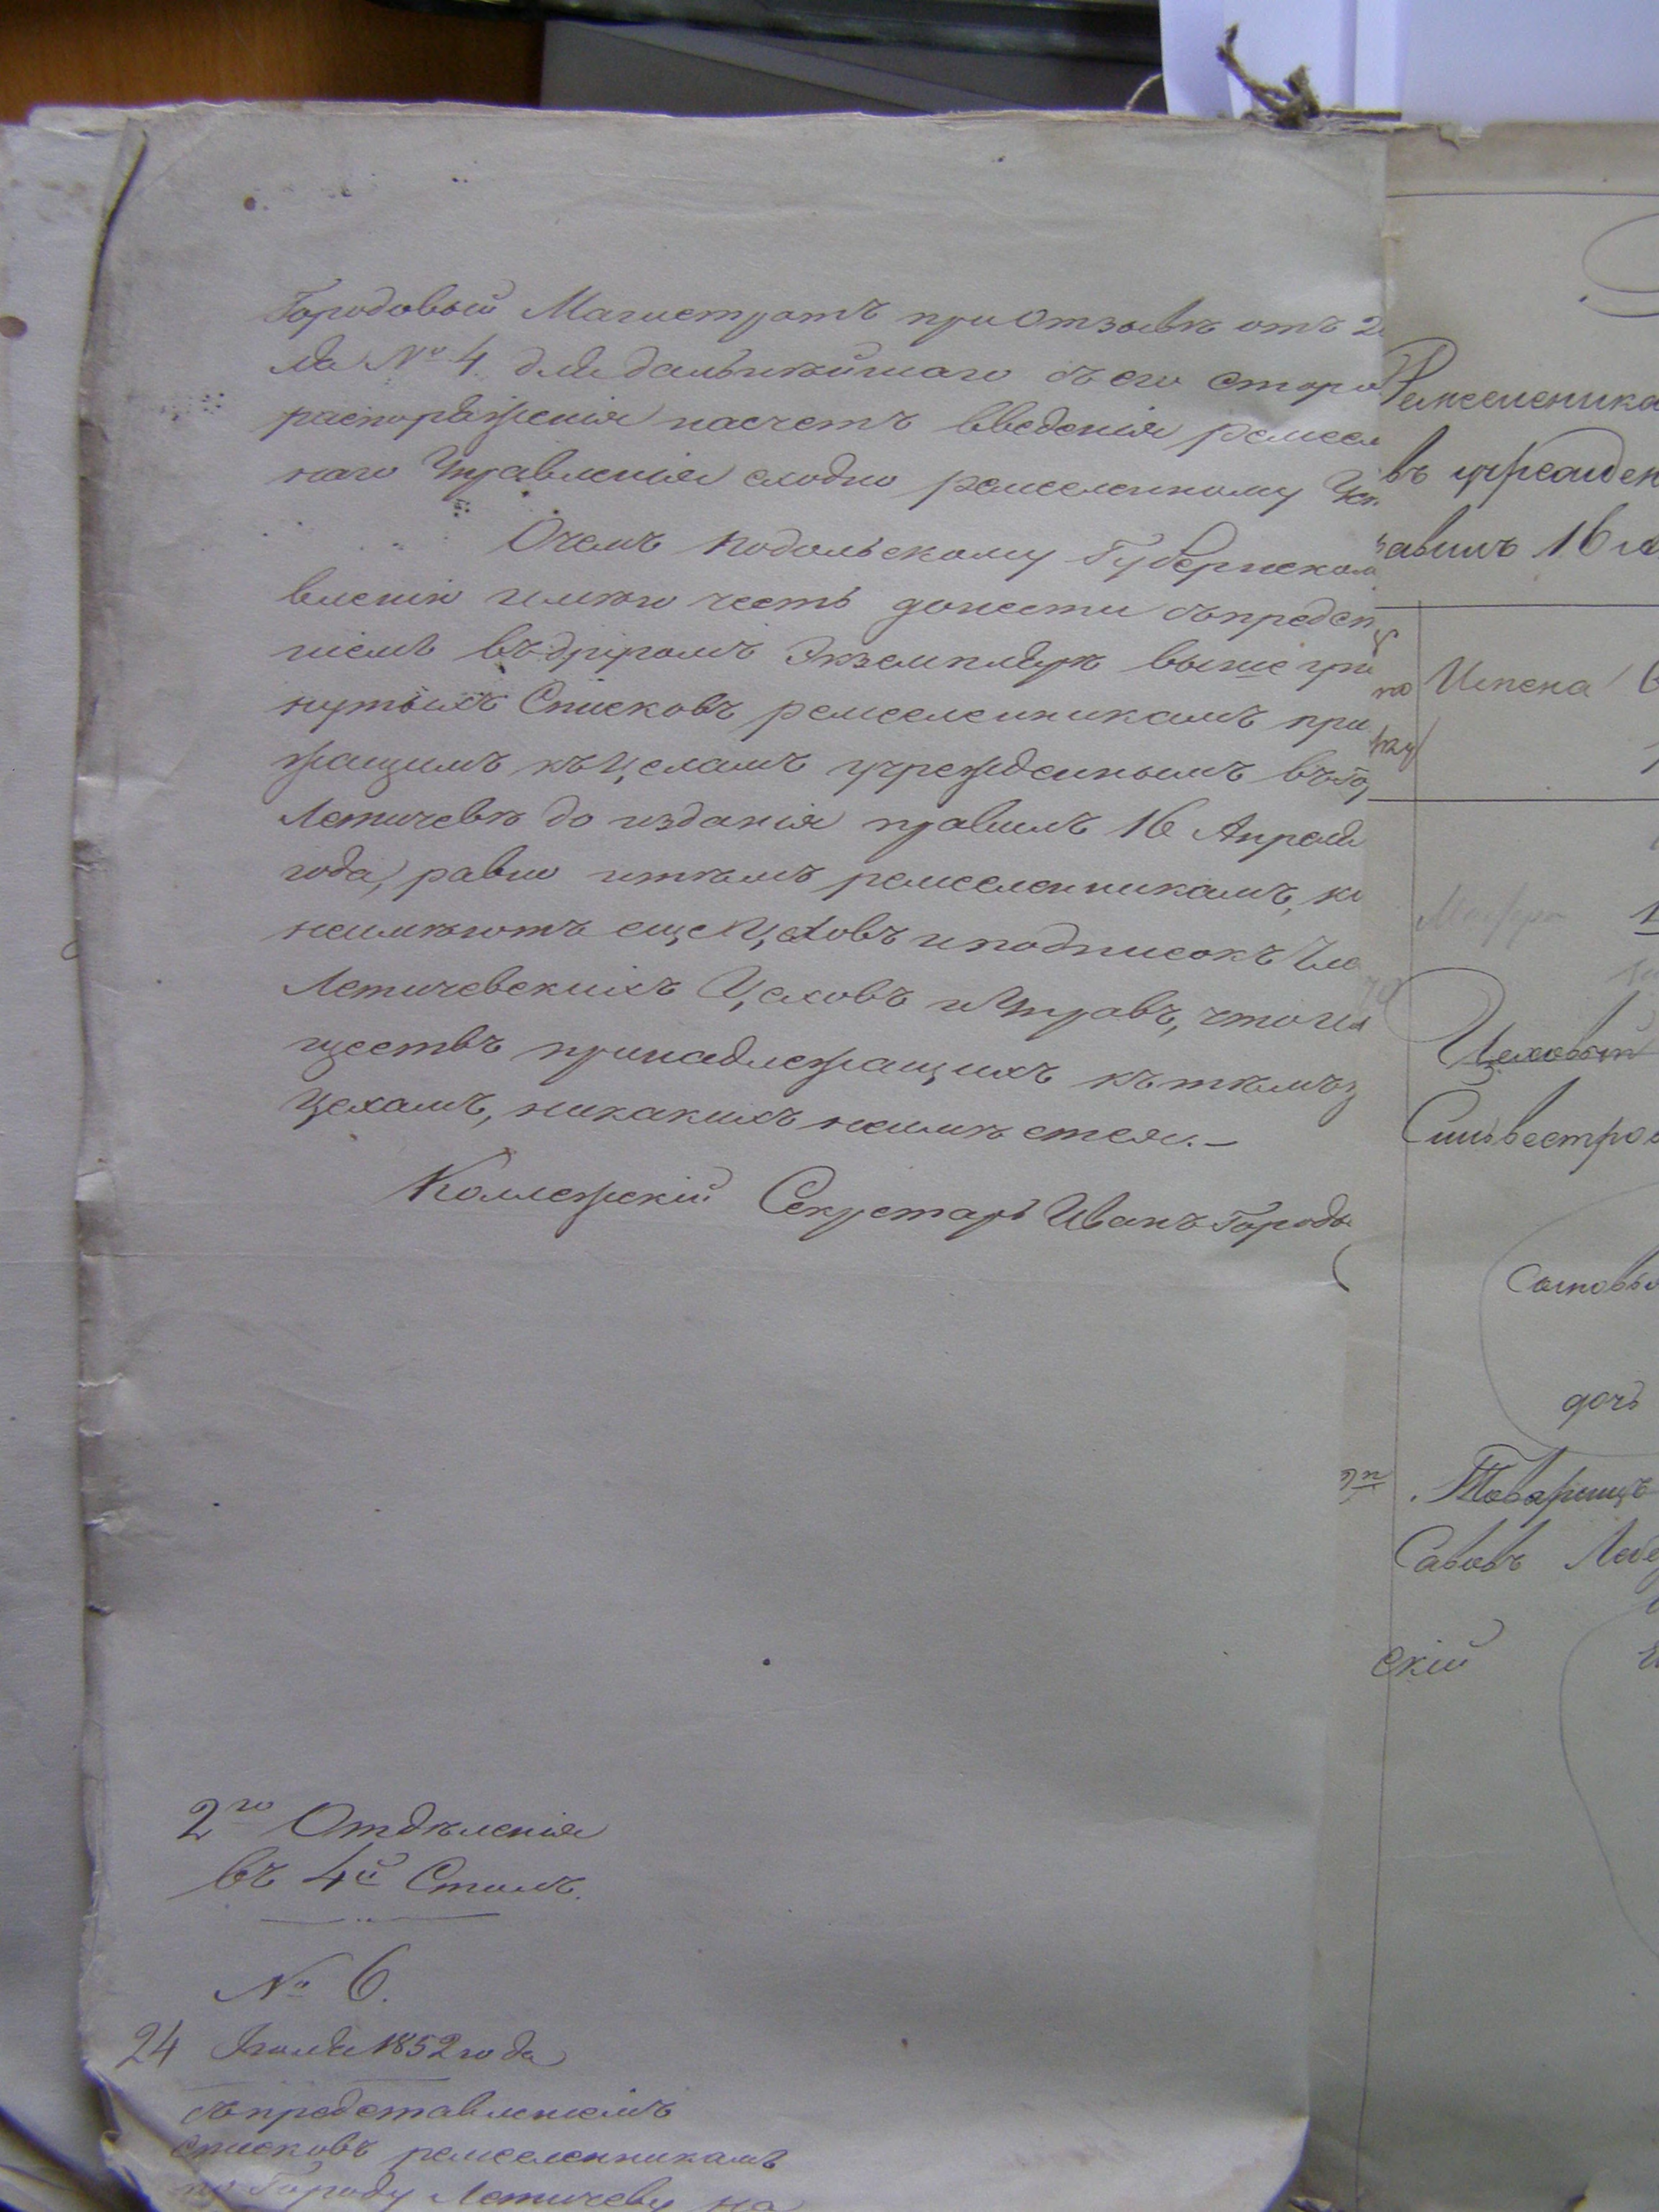 Городовый Магистратъ при отзывѣ отъ 2
ля № 4. для дальнѣйшаго съ его сторо
распоряженія насчетъ введенія ремесл
наго Управленія сходно ремесленному
Очемъ Подольскому Губернском
вленію имѣю честь донести съ предст
ніемъ въ другомъ Экземплярѣ выше упо
нутыхъ Списковъ ремесленникамъ при
жащимъ къ Цехамъ учрежденнымъ въ го
Летичевѣ до изданія правилъ 16 Апреля
года, равно и тѣмъ ремесленникамъ, ко
неимѣютъ еще Цеховъ и подписокъ
Летичевскихъ Цеховъ и Управъ, что им
ществъ принадлежащихъ къ тѣмъ
Цехамъ, никакихъ неимѣется.–
Коллежскій Секретарь Иванъ Городе
2го Отдѣленія
въ 4й Столъ.
№ 6.
24 Іюля 1852 года
съ представленіемъ
списковъ ремесленникамъ
по Городу Летичеву на
Ремесленика
въ учрежден
правилъ 16 го
Имена
Цеховый
Сильвестро
Сыновья
дочь
Товарищъ
Савовъ Лебе
скій